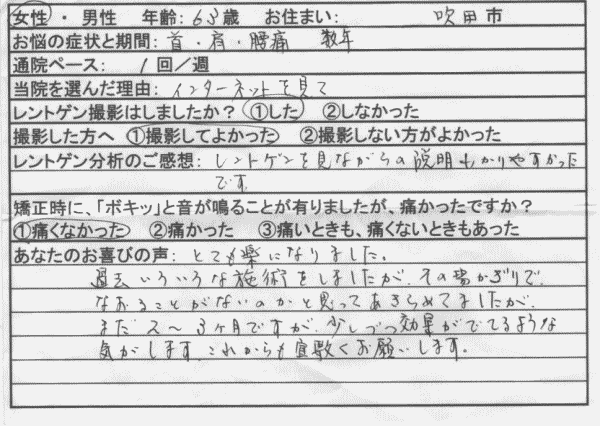 女性 ・ 男性 年齢：63歳 お住まい： 吹田市
お悩の症状と期間：首・肩・腰痛 数年
通院ペース： 1回／週
当院を選んだ理由：インターネットを見て
レントゲン撮影はしましたか？ ①した ②しなかった
撮影した方へ ①撮影してよかった ②撮影しない方がよかった
レントゲン分析のご感想：レントゲンを見ながらの説明もかりやすかった
です
矯正時に、「ボキッ」と音が鳴ることが有りましたが、痛かったですか？
①痛くなかった ②痛かった ③痛いときも、痛くないときもあった
あなたのお喜びの声：とても楽になりました。
過去いろいろな施術をしましたが、その場かぎりで、
なおることがないのかと思ってあきらめてましたが、
まだ2～3ヶ月ですが、少しづつ効果がでてるような
気がします。これからも宜敷くお願いします。